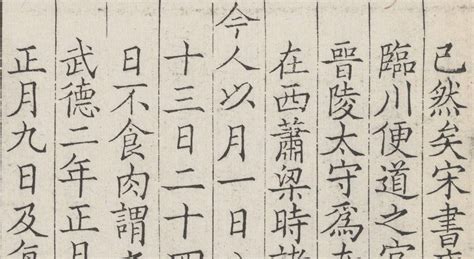 已然矣宋書
臨川便道之官
晉陵太守爲
在西蕭梁時諸
今人以月一日
十三日二十四
日不食肉謂
武德二年正月
正月九日及每